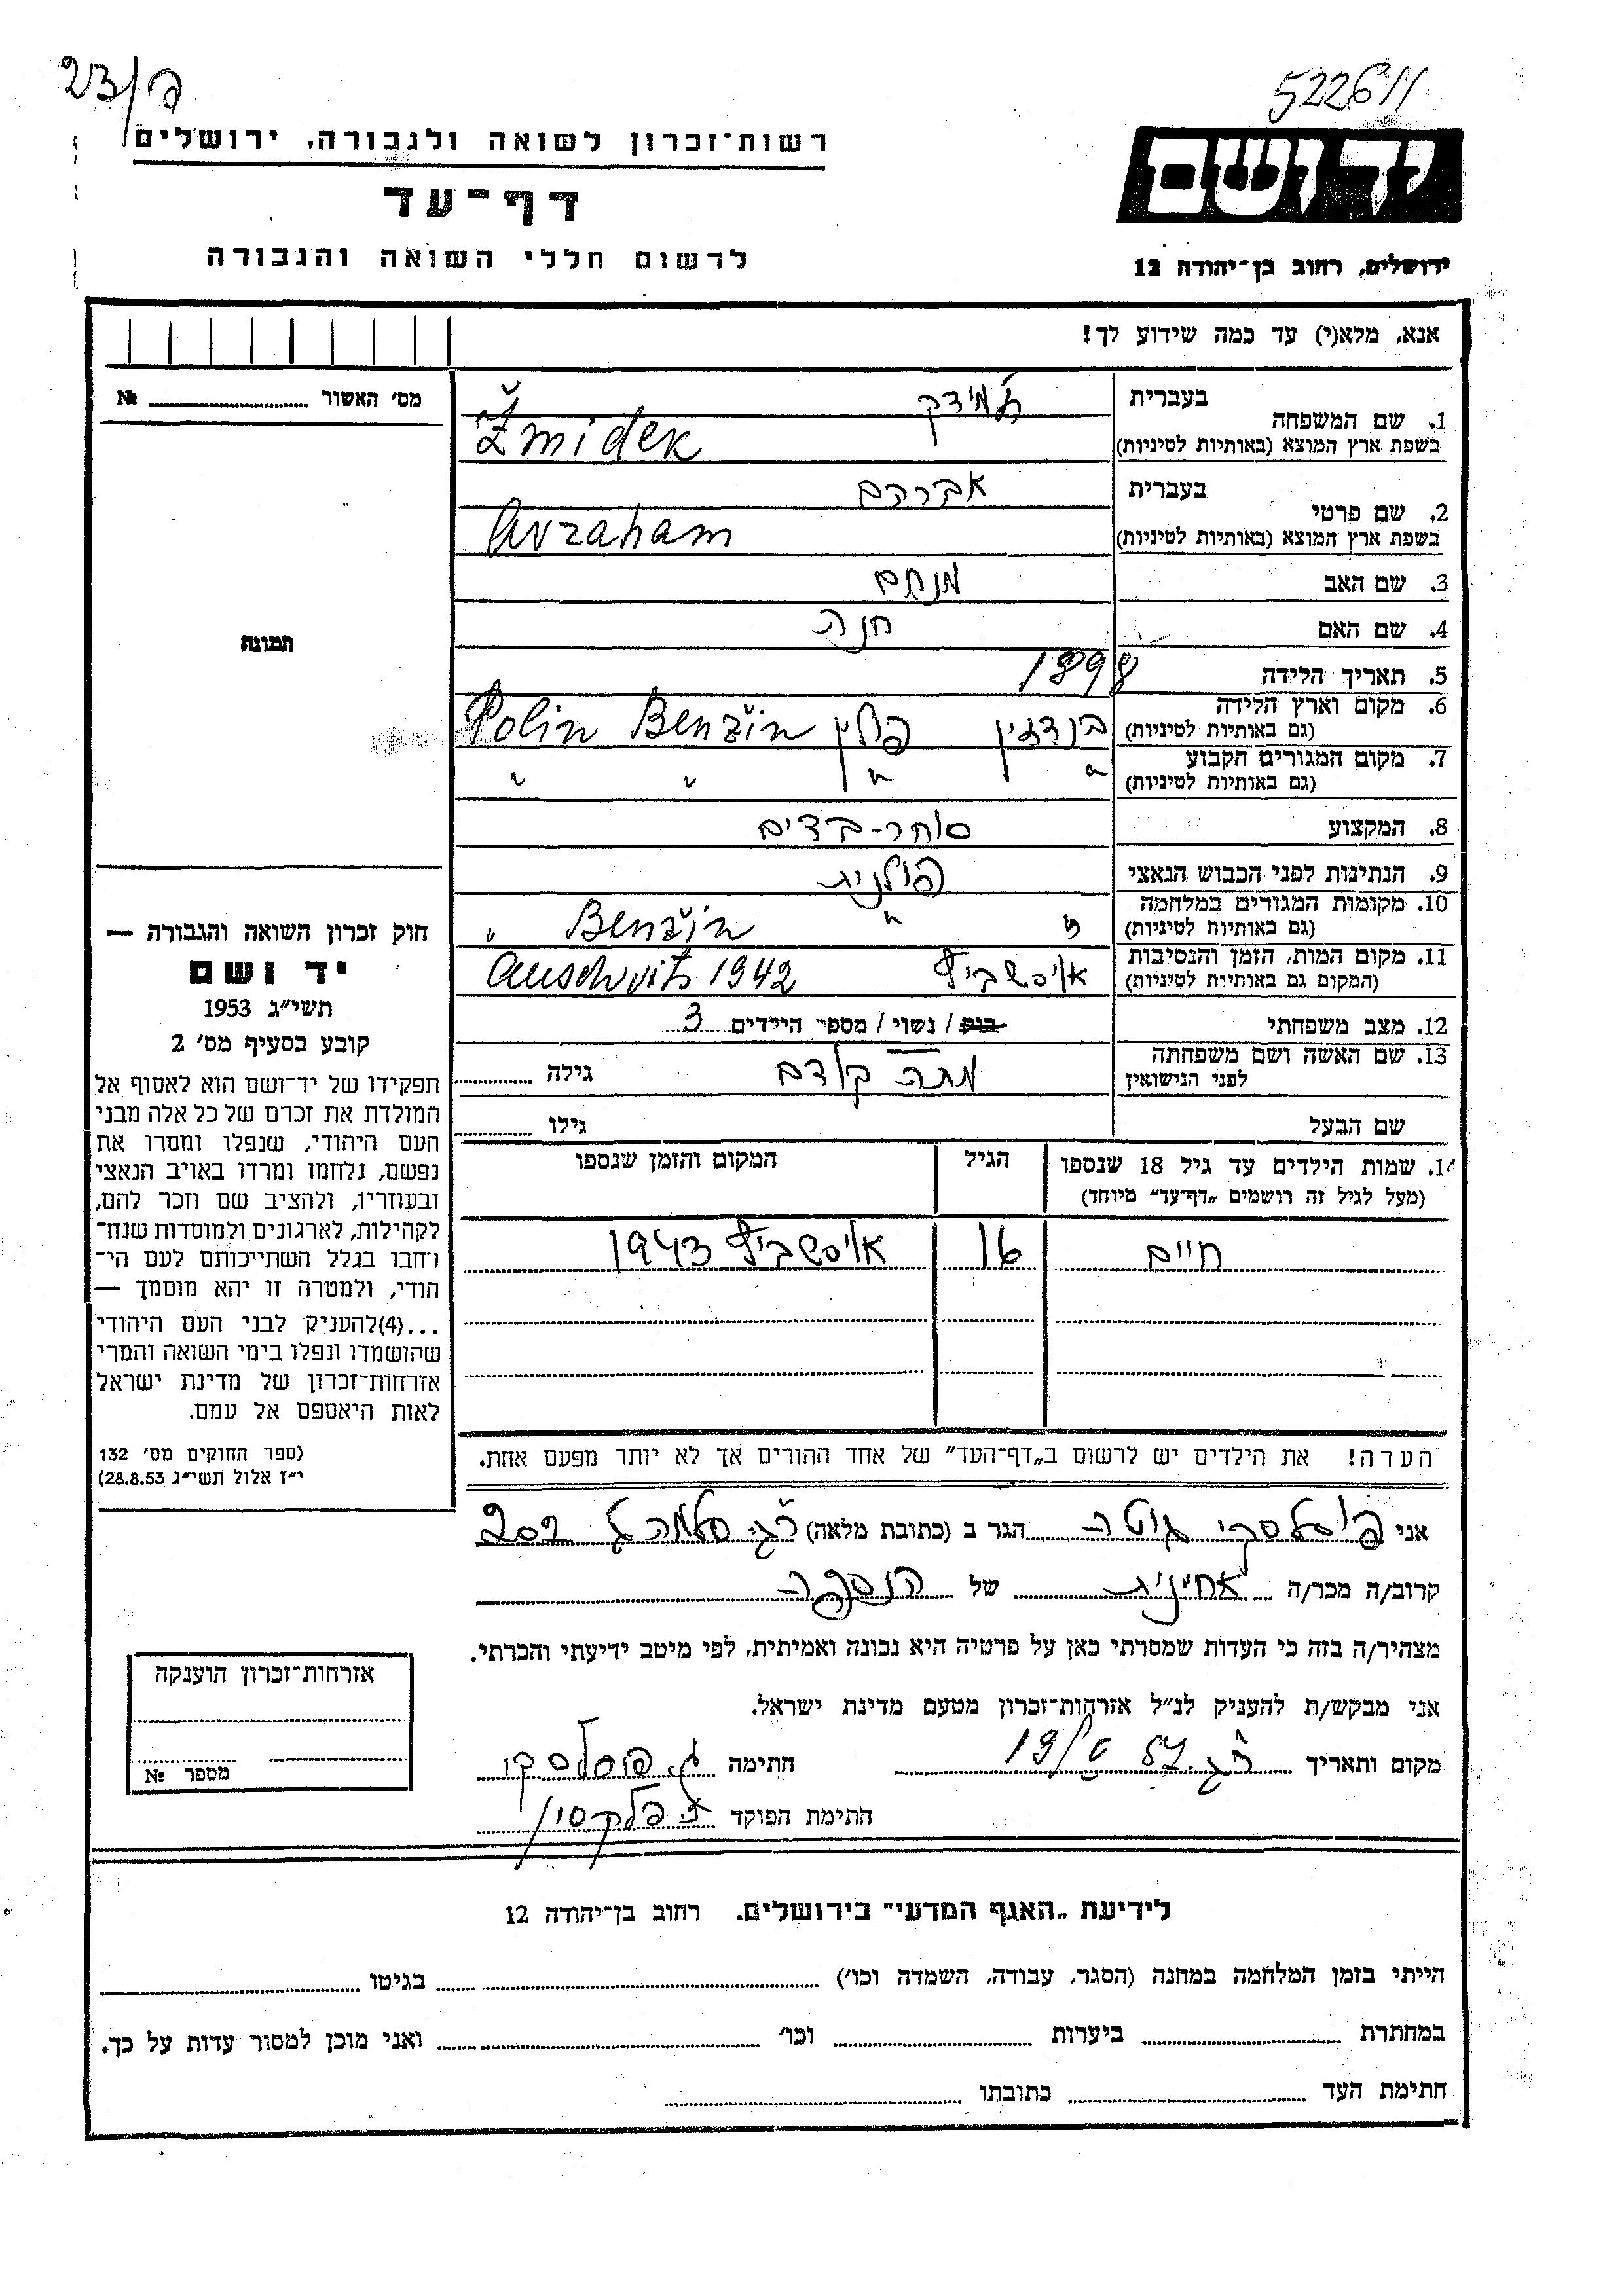 23/ק
522611
רשות־זכרון לשואה ולגבורה, ירושלים
דף־עד
לרשום חללי השואה והגבורה
יד ושם
ירושלים, רחוב בן־יהודה 12
אנא, מלא(י) עד כמה שידוע לך!
מס׳ האשור № 
1. שם המשפחה
בעברית ז'מידק
בשפת ארץ המוצא (באותיות לטיניות) Žmidek
2. שם פרטי
בעברית אברהם
בשפת ארץ המוצא (באותיות לטיניות) Avraham
3. שם האב מנחם
4. שם האם חנה
5. תאריך הלידה 1898
6. מקום וארץ הלידה
(גם באותיות לטיניות) בנדז'ין פולין Benžin Polin
7. מקום המגורים הקבוע
(גם באותיות לטיניות) " " " "
8. המקצוע סוחר-בדים
9. הנתינות לפני הכבוש הנאצי פולנית
10. מקומות המגורים במלחמה
(גם באותיות לטיניות) " " Benžin "
11. מקום המות, הזמן והנסיבות
(המקום גם באותיות לטיניות) אושביץ Auschvits 1942
12. מצב משפחתי רווק / נשוי / מספר הילדים 3
13. שם האשה ושם משפחתה
לפני הנישואין גילה
שם הבעל גילו
14. שמות הילדים עד גיל 18 שנספו
(מעל לגיל זה רושמים „דף־עד” מיוחד)
הגיל
המקום והזמן שנספו
חיים 16 אושביץ 1943
הערה! את הילדים יש לרשום ב„דף־העד” של אחד ההורים אך לא יותר מפעם אחת.
תמונה
חוק זכרון השואה והגבורה —
יד ושם
תשי״ג 1953
קובע בסעיף מס׳ 2
תפקידו של יד־ושם הוא לאסוף אל
המולדת את זכרם של כל אלה מבני
העם היהודי, שנפלו ומסרו את
נפשם, נלחמו ומרדו באויב הנאצי
ובעוזריו, ולהציב שם וזכר להם,
לקהילות, לארגונים ולמוסדות שנח־
רחבו בגלל השתייכותם לעם הי־
הודי, ולמטרה זו יהא מוסמך —
...(4)להעניק לבני העם היהודי
שהושמדו ונפלו בימי השואה והמרי
אזרחות־זכרון של מדינת ישראל
לאות היאספם אל עמם.
(ספר החוקים מס׳ 132
י״ז אלול תשי״ג 28.8.53)
אני גוטה הגר ב (כתובת מלאה) 202
קרוב/ה מכר/ה אחינית של הנספה
מצהיר/ה בזה כי העדות שמסרתי כאן על פרטיה היא נכונה ואמיתית, לפי מיטב ידיעתי והכרתי.
אני מבקש/ת להעניק לנ״ל אזרחות־זכרון מטעם מדינת ישראל.
מקום ותאריך חתימה
חתימת הפוקד
אזרחות־זכרון הוענקה
מספר №
לידיעת „האגף המדעי” בירושלים. רחוב בן־יהודה 12
הייתי בזמן המלחמה במחנה (הסגר, עבודה, השמדה וכו׳) בגיטו
במחתרת ביערות וכו׳ ואני מוכן למסור עדות על כך.
חתימת העד כתובתו